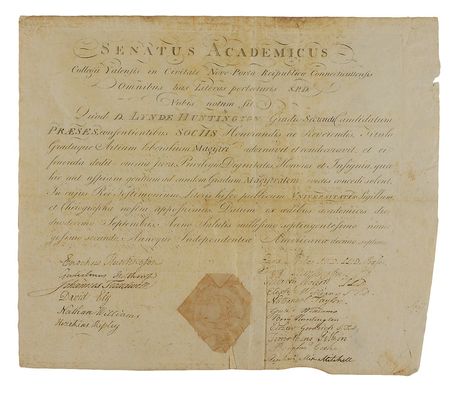 SENATUS ACADEMICUS
Collegii Yalensis in Civitate Novo-Portu Reipublicæ Connecticutensis
Omnibus has Literas perlecturis S.P.D.
Nobis notum sit
Quod D. LYNDE HUNTINGTON Gradûs Secundi candidatum
PRÆSES, consentientibus SOCIIS Honorandis ac Reverendis, Titulo
Graduque Artium liberalium Magistri adornavit et condecoravit, et ei
fruenda dedit omnia Jura, Privilegia, Dignitates, Honores et Insignia, quæ
hic aut uspiam gentium ad eundem Gradum Magistralem evectis concedi solent.
In cujus Rei Testimonium Literis hisce publicum UNIVERSITATIS Sigillum
et Chirographa nostra apposuimus. Datum ex ædibus academicis
duodecimo Septembris Anno Salutis millesimo septingentesimo nona-
gesimo secundo, Annoque Independentiæ Americanæ decimo septimo
Enochus Huntington
David Ely
Nathan Williams
Hezekias Ripley
Ezra Stiles
Nathaniel Taylor
Williams
Huntington
Goodrich
Stephen Mix Mitchell